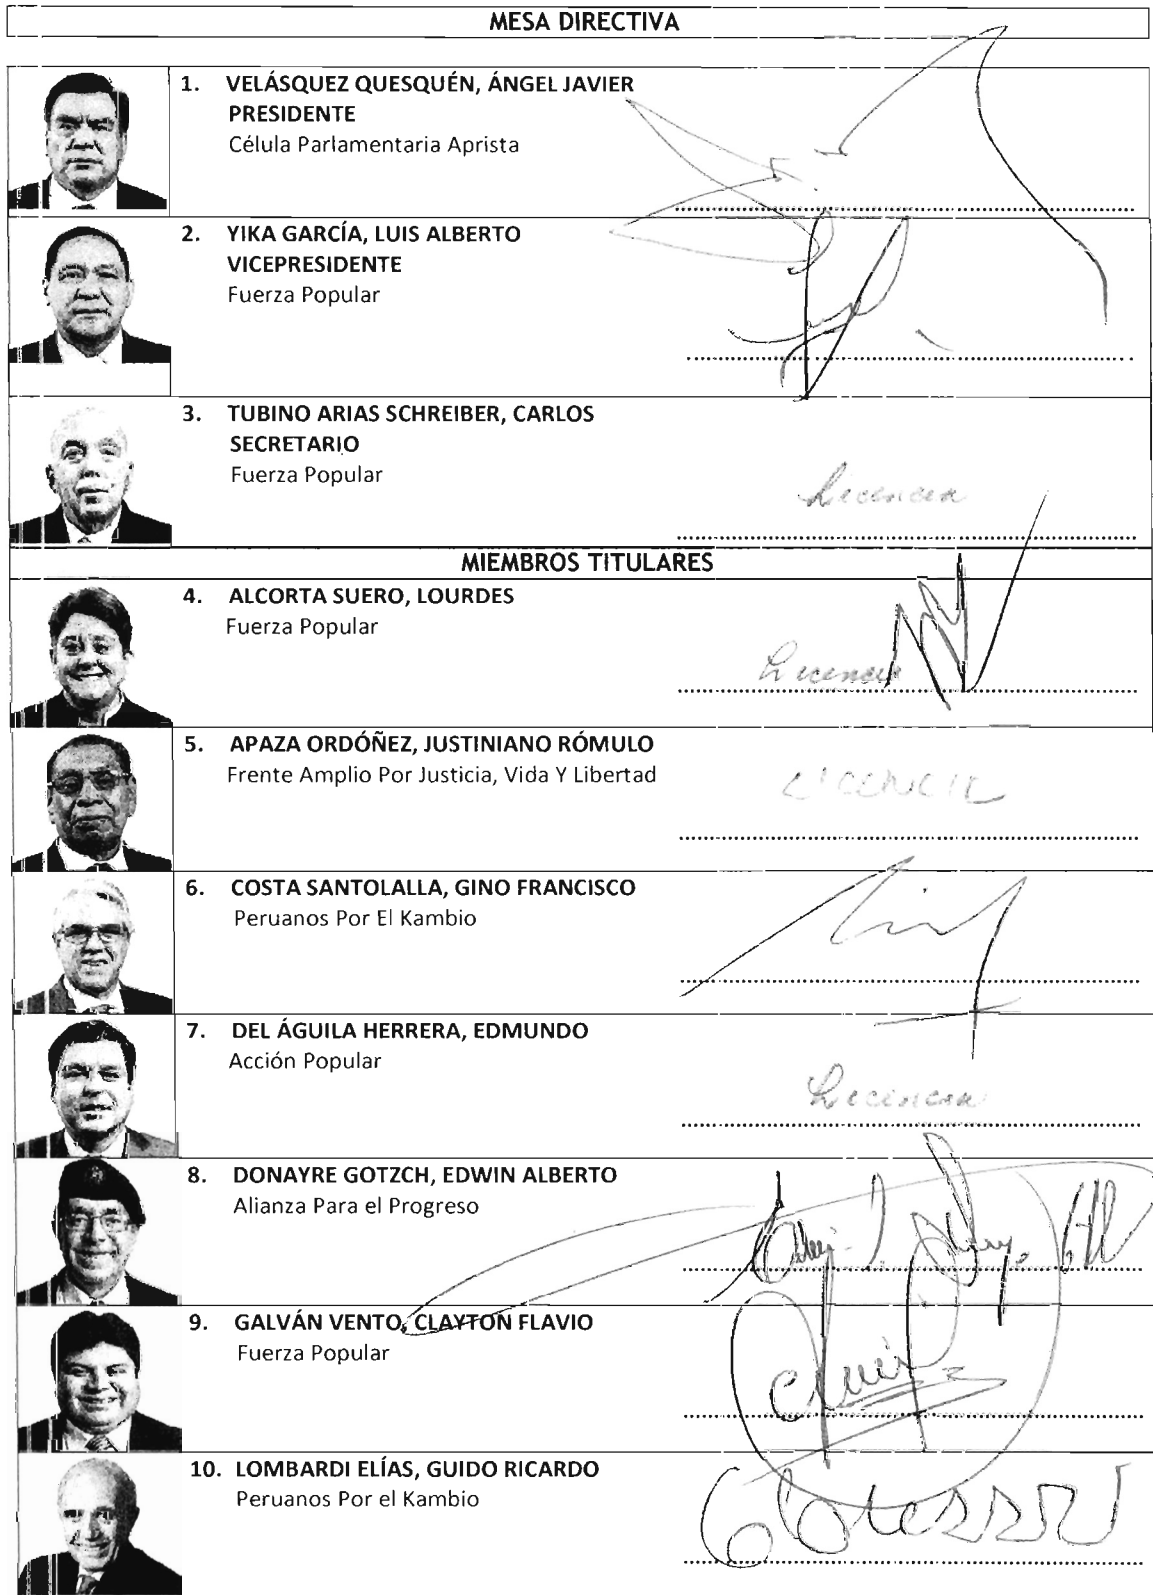 MESA DIRECTIVA
1. VELÁSQUEZ QUESQUÉN, ÁNGEL JAVIER
PRESIDENTE
Célula Parlamentaria Aprista
2. YIKA GARCÍA, LUIS ALBERTO
VICEPRESIDENTE
Fuerza Popular
3. TUBINO ARIAS SCHREIBER, CARLOS
SECRETARIO
Fuerza Popular
Licencia
MIEMBROS TITULARES
4. ALCORTA SUERO, LOURDES
Fuerza Popular
Licencia
5. APAZA ORDÓÑEZ, JUSTINIANO RÓMULO
Frente Amplio Por Justicia, Vida Y Libertad
LICENCIA
6. COSTA SANTOLALLA, GINO FRANCISCO
Peruanos Por El Kambio
7. DEL ÁGUILA HERRERA, EDMUNDO
Acción Popular
Licencia
8. DONAYRE GOTZCH, EDWIN ALBERTO
Alianza Para el Progreso
9. GALVÁN VENTO, CLAYTON FLAVIO
Fuerza Popular
10. LOMBARDI ELÍAS, GUIDO RICARDO
Peruanos Por el Kambio